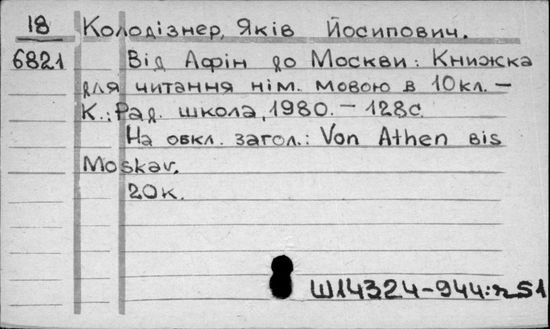 18 Колодізнер, Яків Йосипович.
6821 Від Афін до Москви: Книжка
для читання нім. мовою в 10кл. –
К.: Рад. школа, 1980. – 128с.
На обкл. загол.: Von Athen bis
Moskav.
20к.
Ш14324-944:n S1